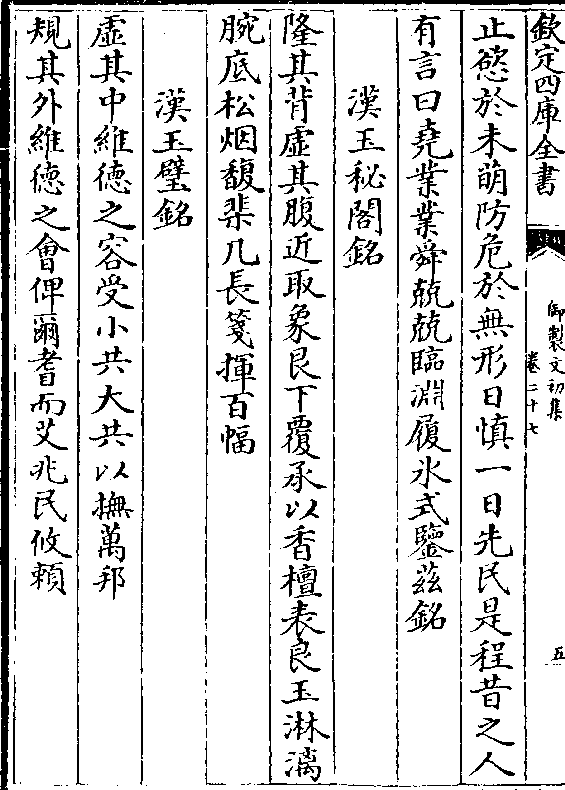 欽定四庫全書
御製文初集
卷二十七
五
止慾於未萌防危於無形日慎一日先民是程昔之人
有言曰堯業業舜兢兢臨淵履氷式鑒茲銘
漢玉秘閣銘
隆其背虛其腹近取象艮下覆承以香檀表良玉淋漓
腕底松烟馥棐几長箋揮百幅
漢玉璧銘
虛其中維德之容受小共大共以撫萬邦
規其外維德之會俾爾耆而艾兆民攸賴